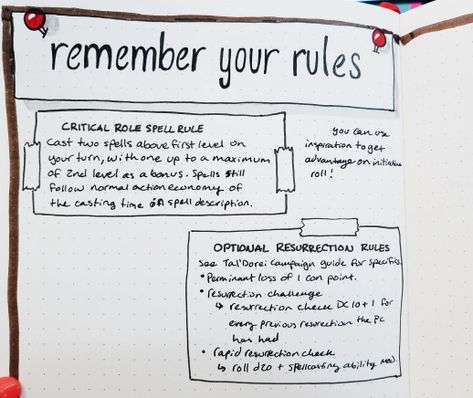 remember your rules
CRITICAL ROLE SPELL RULE
Cast two spells above first level on
your turn, with one up to a maximum
of 2nd level as a bonus. Spells still
follow normal action economy of
the casting time on spell description.
you can use
inspiration to get
advantage on initiative
roll!
OPTIONAL RESURRECTION RULES
See Tal'Dorei campaign guide for specifics
• Perminant loss of 1 con point.
• resurrection challenge
↳ resurrection check DC 10 + 1 for
every previous resurrection the PC
has had
• rapid resurrection check
↳ roll d20 + spellcasting ability mod.